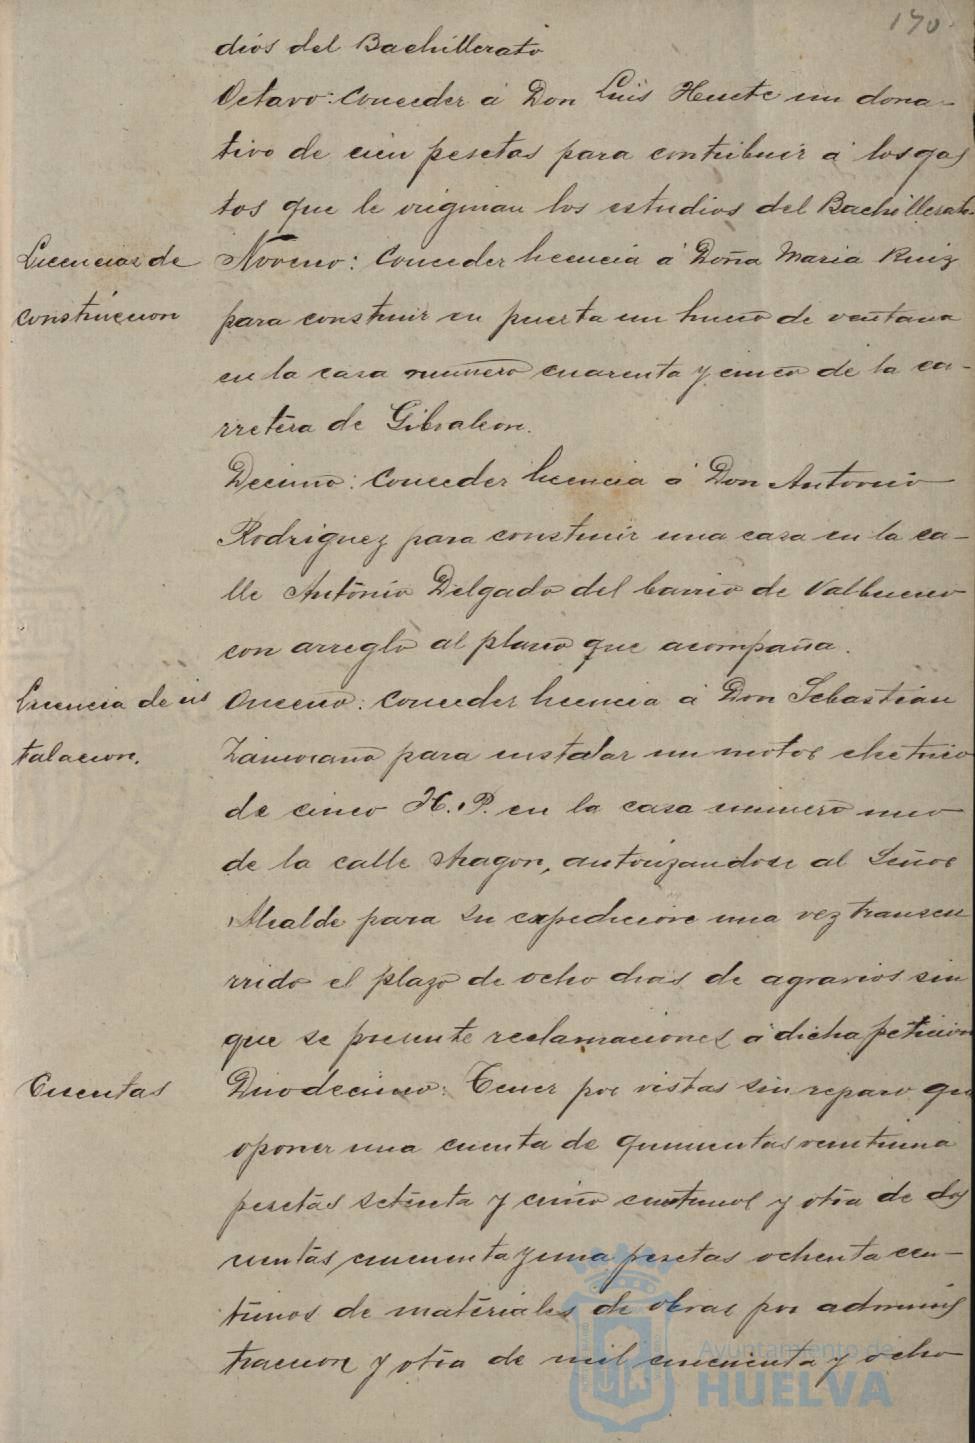 170.
dios del Bachillerato
Octavo: Conceder á Don Luis Huete un dona-
tivo de cien pesetas para contribuir á los gas
tos que le originan los estudios del Bachillerato.
Licencias de
construccion
Noveno: Conceder licencia á Doña Maria Ruiz
para construir en puerta un hueco de ventana
en la casa numero cuarenta y cinco de la ca-
rretera de Gibraleon.
Decimo: Conceder licencia á Don Antonio
Rodriguez para construir una casa en la ca-
lle Antonio Delgado del barrio de Valbueno
con arreglo al plano que acompaña.
Licencia de ins
talacion.
Onceno: Conceder licencia á Don Sebastian
Zamorano para instalar un motor electrico
de cinco H.P. en la casa numero uno
de la calle Aragon, autorizandose al Señor
Alcalde para su expedicion una vez transcu
rrido el plazo de ocho dias de agravios sin
que se presente reclamaciones á dicha peticion
Cuentas
Duodecimo: Tener por vistas sin reparo que
oponer una cuenta de quinientas veintiuna
pesetas setenta y cinco centimos y otra de dos
cientas cincuenta y una pesetas ochenta cen-
timos de materiales de obras por adminis
tracion y otra de mil cincuenta y ocho
Ayuntamiento de
HUELVA